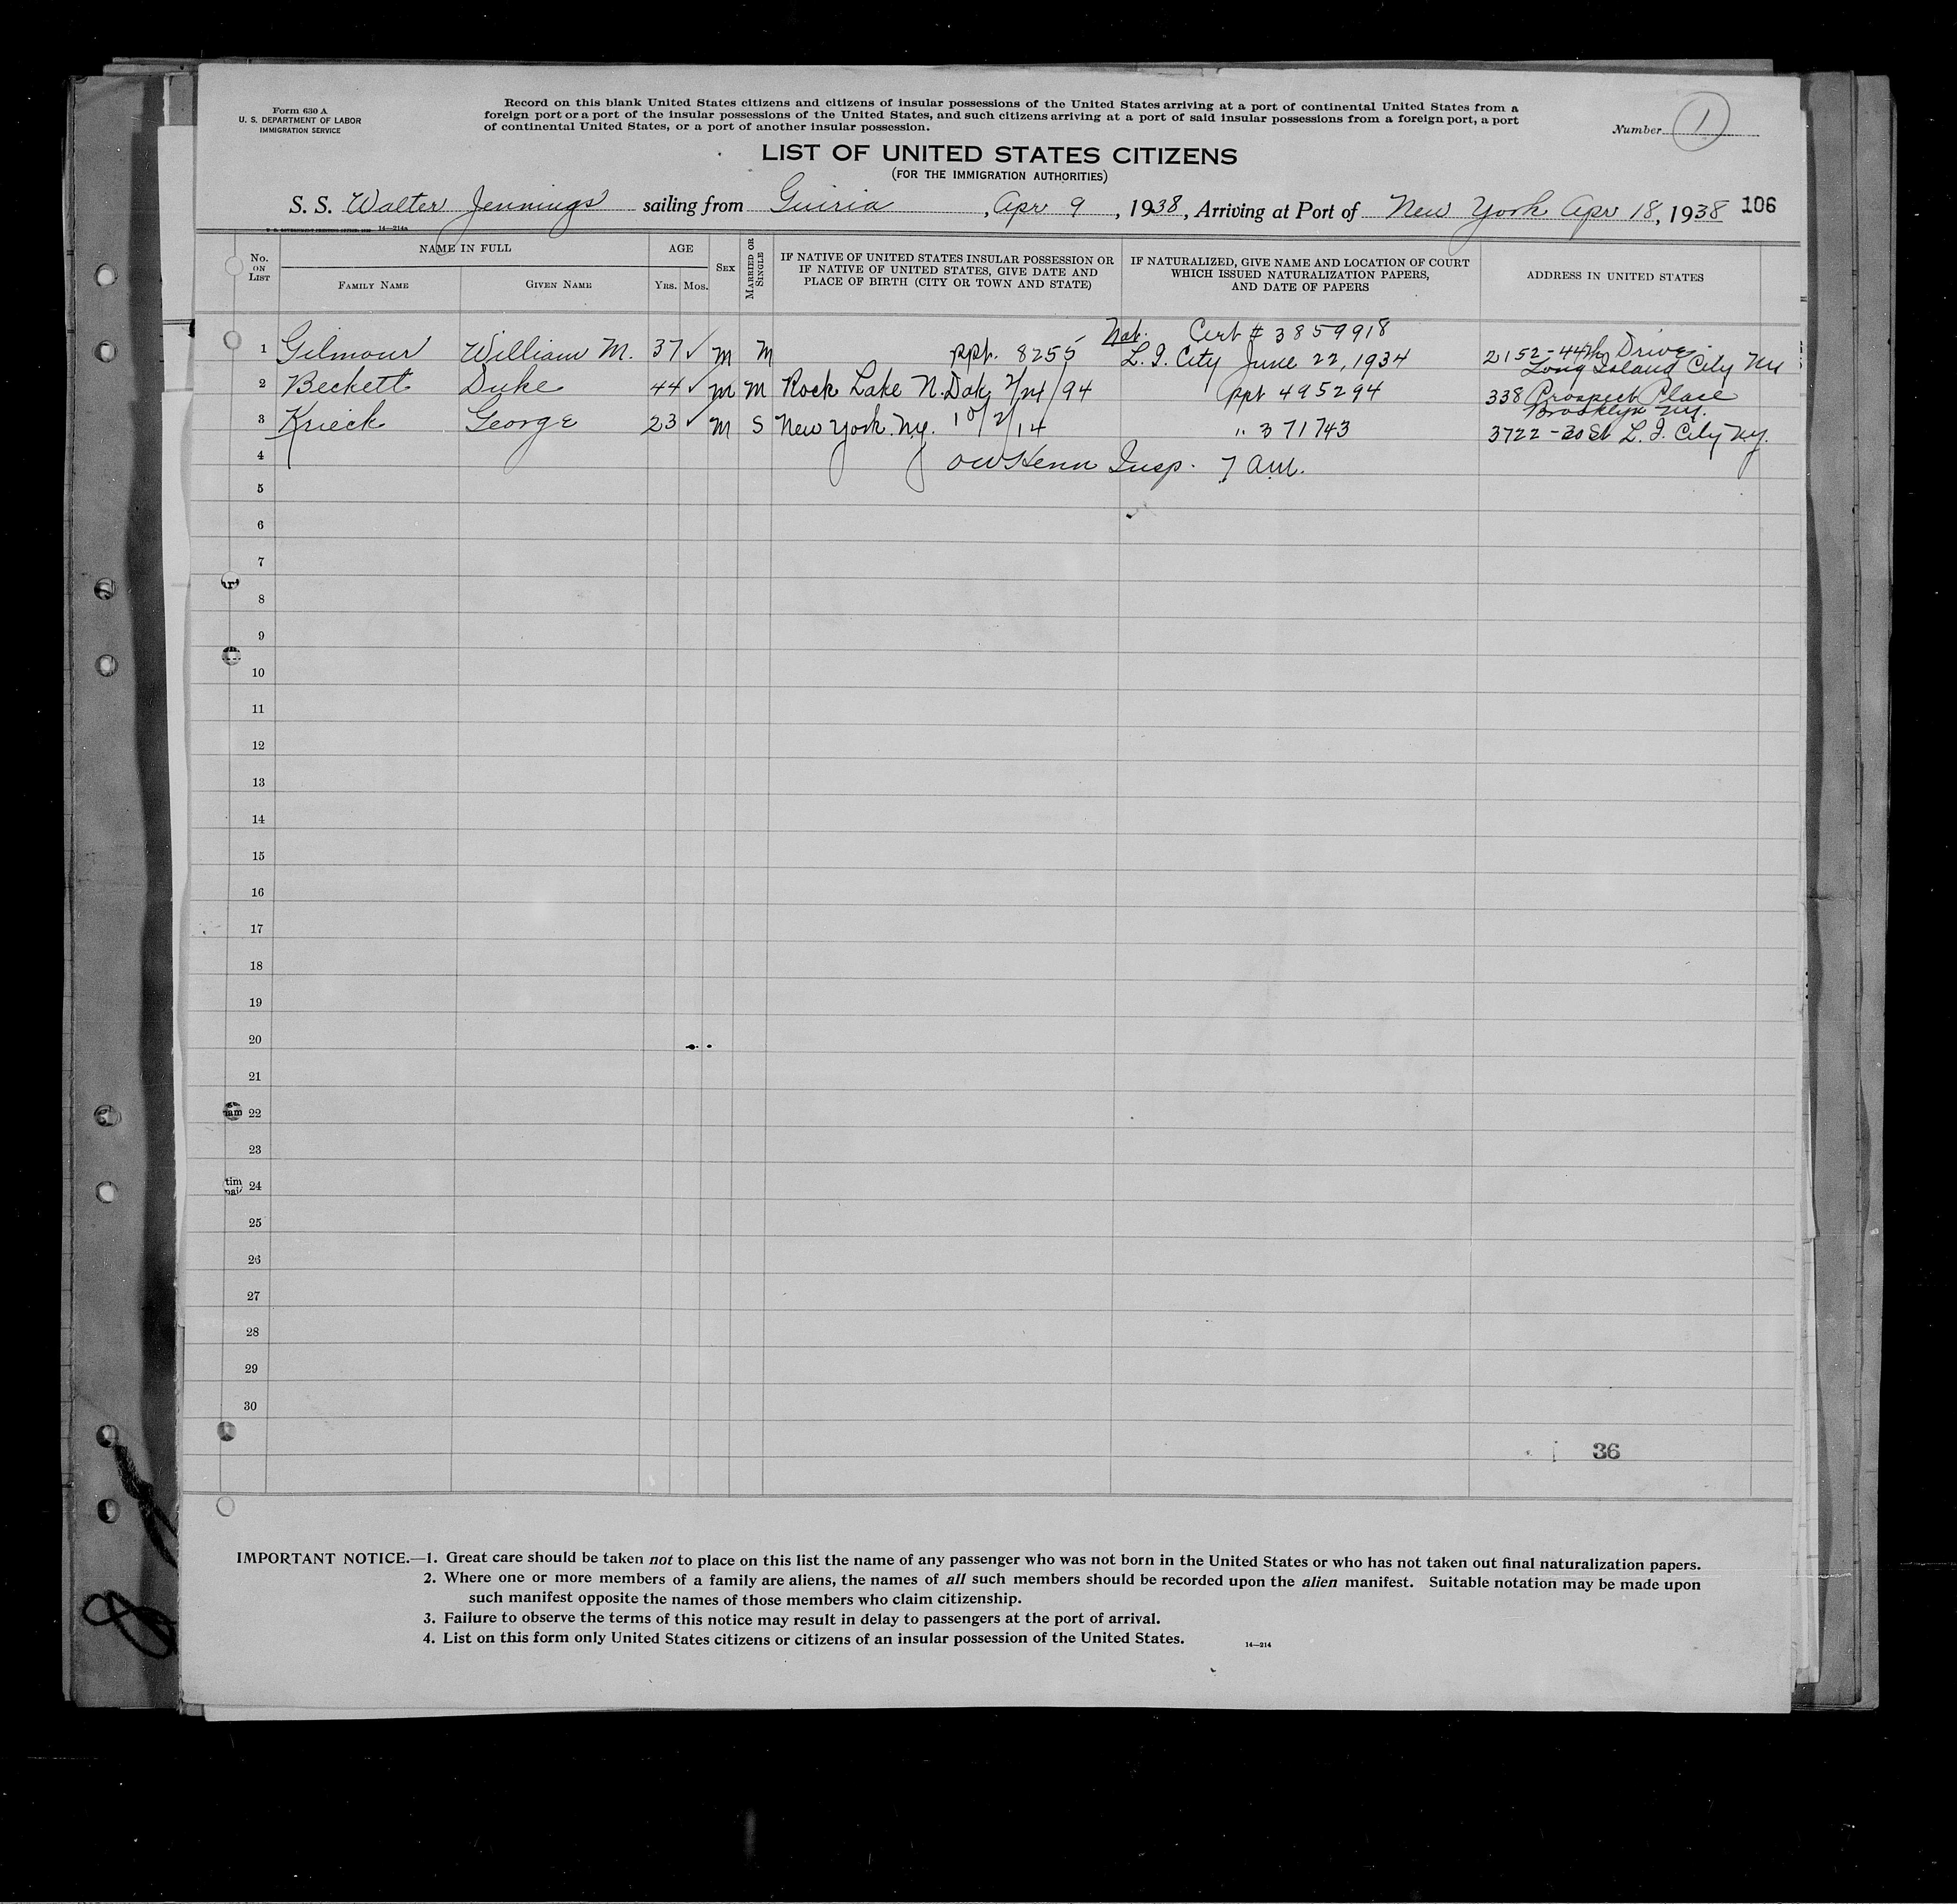 Form 630 A
U. S. DEPARTMENT OF LABOR
IMMIGRATION SERVICE
Record on this blank United States citizens and citizens of insular possessions of the United States arriving at a port of continental United States from a
foreign port or a port of the insular possessions of the United States, and such citizens arriving at a port of said insular possessions from a foreign port, a port
of continental United States, or a port of another insular possession.
Number 1
LIST OF UNITED STATES CITIZENS
(FOR THE IMMIGRATION AUTHORITIES)
S. S. Walter Jennings sailing from Guiria, Apr 9, 1938, Arriving at Port of New York Apr 18, 1938 106
14—214a
No. ON LIST
NAME IN FULL
FAMILY NAME
GIVEN NAME
AGE
YRS. MOS.
SEX
MARRIED OR SINGLE
IF NATIVE OF UNITED STATES INSULAR POSSESSION OR
IF NATIVE OF UNITED STATES, GIVE DATE AND
PLACE OF BIRTH (CITY OR TOWN AND STATE)
IF NATURALIZED, GIVE NAME AND LOCATION OF COURT
WHICH ISSUED NATURALIZATION PAPERS,
AND DATE OF PAPERS
ADDRESS IN UNITED STATES
Nat. Cert # 3859918
1 Gilmour William M. 37 ✓ M M ppt. 8255 L. I. City June 22, 1934 2152-44th Drive
Long Island City NY
2 Beckett Duke 44 ✓ M M Rock Lake N. Dak 2/24/94 ppt 495294 338 Prospect Place
Brooklyn N.Y.
3 Krieck George 23 ✓ M S New York. N.Y. 10/2/14 " 371743 3722-30 St L. I. City N.Y.
4 Insp. 7 am.
5
6
7
8
9
10
11
12
13
14
15
16
17
18
19
20
21
22
23
24
25
26
27
28
29
30
36
IMPORTANT NOTICE.—1. Great care should be taken not to place on this list the name of any passenger who was not born in the United States or who has not taken out final naturalization papers.
2. Where one or more members of a family are aliens, the names of all such members should be recorded upon the alien manifest. Suitable notation may be made upon
such manifest opposite the names of those members who claim citizenship.
3. Failure to observe the terms of this notice may result in delay to passengers at the port of arrival.
4. List on this form only United States citizens or citizens of an insular possession of the United States.
14—214